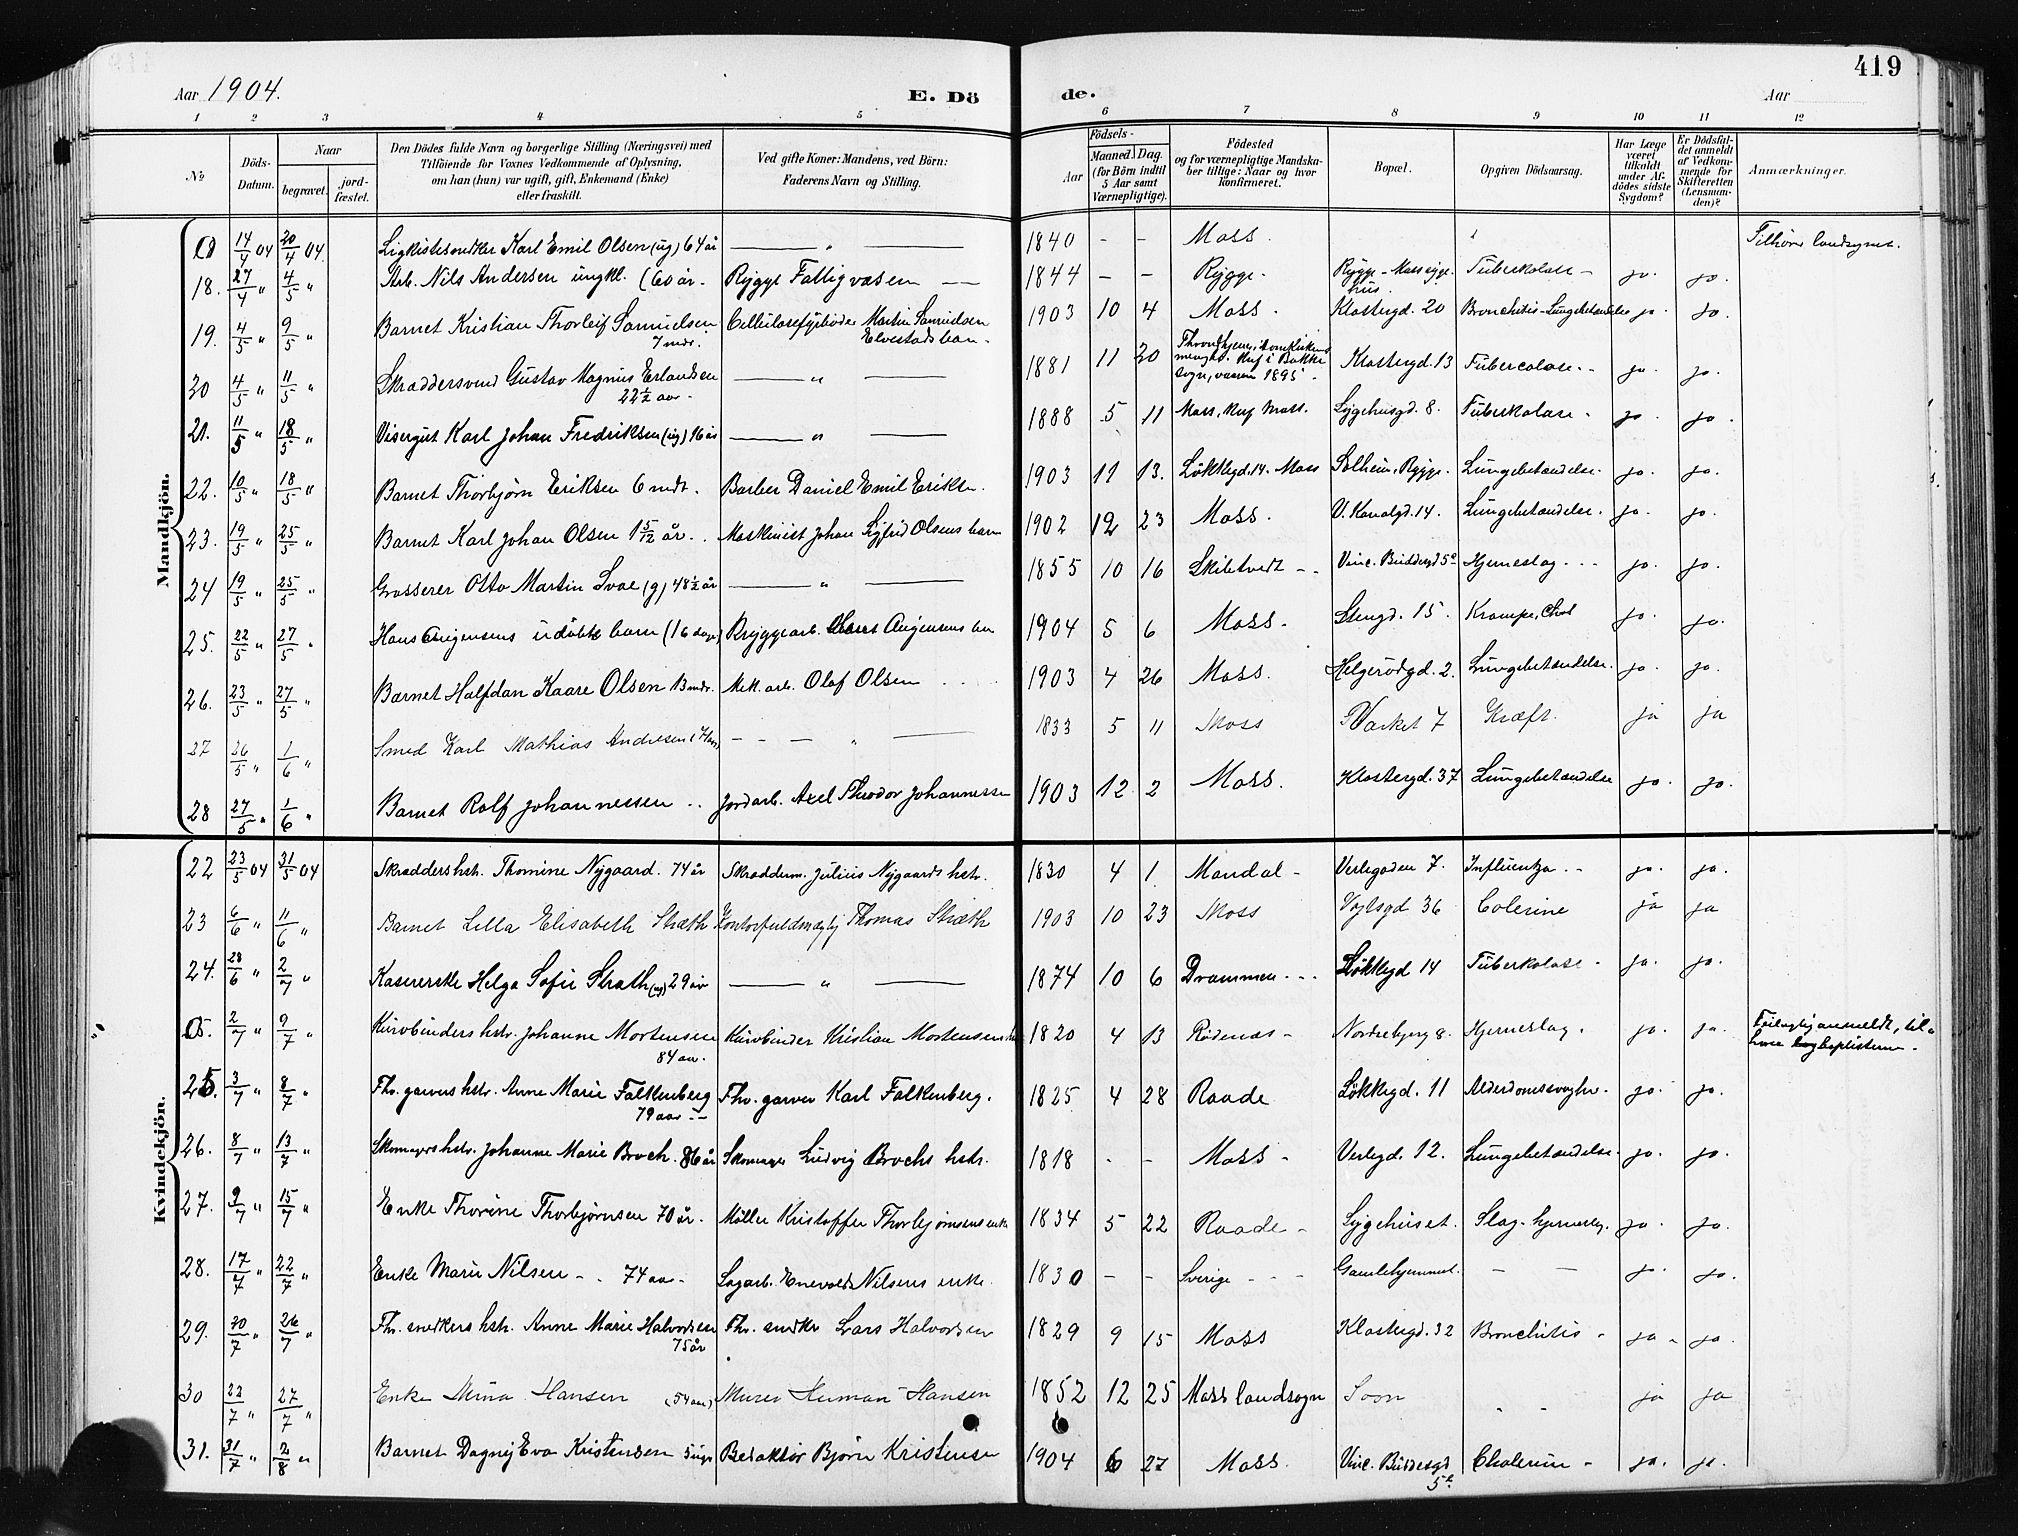 419
Aar 1904.
E. Dö
de.
Aar
1 2 3 4 5 6 7 8 9 10 11 12
No
Döds-Datum.
Naar
begravet. jordfæstet.
Den Dödes fulde Navn og borgerlige Stilling (Næringsvei) med
Tilföiende for Voxnes Vedkommende af Oplysning,
om han (hun) var ugift, gift, Enkemand (Enke)
eller fraskilt.
Ved gifte Koner: Mandens, ved Börn:
Faderens Navn og Stilling.
Födsels-
Aar
Maaned. Dag.
(for Börn indtil
5 Aar samt
Værnepligtige).
Födested
og for værnepligtige Mandska-
ber tillige: Naar og hvor
konfirmeret.
Bopæl.
Opgiven Dödsaarsag.
Har Læge
været
tilkaldt
under Af-
dödes sidste
Sygdom?
Er Dödsfal-
det anmeldt
af Vedkom-
mende for
Skifteretten
(Lensman-
den)?
Anmærkninger.
Mandkjön.
0 14/4 04 20/4 04 Ligkistesnedker Karl Emil Olsen (ug) 64 år — " — 1840 - - Moss. Tilhörer landsognet.
18. 27/4 " 4/5 " Arb. Nils Andersen ungkl. (60 år. Rygge Fattigvæsen — 1844 - - Rygge. Rygge-Moss syge-
hus. Tuberkolose - ja. ja.
19. 4/5 " 9/5 " Barnet Kristian Thorleif Samuelsen
7 mdr. Cellulosefyrböder Martin Samuelsen
Elvestads barn. 1903 10 4 Moss. Klostergd. 20 Bronchitis-Lungebetændelse ja. ja.
20 4/5 " 11/5 " Skræddersvend Gustav Magnus Erlandsen
22 1/2 aar. — " — 1881 11 20 Throndhjems, domkirkens
menighd. Kuf i Bakke
sogn, vaaren 1895. Klostergd. 13 Tubercolose.. ja. ja.
21. 11/5 " 18/5 " Visergut Karl Johan Fredriksen (ug) 16 år — " — 1888 5 11 Moss, Kuf Moss. Sygehusgd. 8. Tuberkolose. ja. ja.
22. 10/5 " 18/5 " Barnet Thorbjørn Eriksen 6 mdr. Barber Daniel Emil Eriksen. 1903 11 13. Løkkegd. 14. Moss Solheim, Rygge. Lungebetændelse. ja. ja.
23. 19/5 " 25/5 " Barnet Karl Johan Olsen 1 5/12 år.. Maskinist Johan Sigfrid Olsens barn 1902 12 23 Moss. V. Kanalgd. 14. Lungebetændelse. ja. ja.
24 19/5 " 25/5 " Grosserer Otto Martin Svae (g) 48 1/2 år — " — 1855 10 16 Skibtvedt - - Vinc. Buddesgd 5 Hjerneslag - - - ja. ja.
25. 22/5 " 27/5 " Hans Jørgensens udøbte barn (16 dage) Bryggearb. Hans Jørgensens barn 1904 5 6 Moss. Stengd. 15. Krampe, ja. ja.
26. 23/5 " 27/5 " Barnet Halfdan Kaare Olsen 13 mdr. Mek. arb. Olaf Olsen 1903 4 26 Moss. Helgerødgd. 2. Lungebetændelse. ja. ja.
27 26/5 " 1/6 " Smed Karl Mathias Andresen — " — 1833 5 11 Moss Værket 7 Kræft. ja ja
28 27/5 " 1/6 " Barnet Rolf Johannessen .. Jordarb. Axel Theodor Johannessen 1903 12 2 Moss. Klostergd. 37 Lungebetændelse ja. ja.
Kvindekjön.
22 23/5 04 31/5 04 Skræddershstr. Thomine Nygaard. 74 år Skrædderm. Julius Nygaards hstr. 1830 4 1. Mandal - Verlegaden 7. Influentza. - ja. ja.
23 6/6 " 11/6 " Barnet Lilla Elisabeth Stræth Kontorfuldmægtig Thomas Stræth 1903 10 23 Moss Vogtsgd 36 Colerine ja ja
24. 28/6 " 2/7 " Kasererske Helga Sofie Strath (ug) 29 år — " — 1874 10 6 Drammen - - - Løkkegd 14 Tuberkolose - ja. ja.
2/7 " 9/7 " Kurvbinders hstr. Johanne Mortensen
84 aar. Kurvbinder Kristian Mortensens 1820 4 13 Rødenæs - Nordrebyg 8. Hjerneslag. ja. ja. Feilagtig anmeldt, til-
hører baptisterne.
25. 3/7 " 8/7 " Fhv. garvers hstr. Anne Marie Falkenberg
79 aar -- Fhv. garver Karl Falkenberg. 1825 4 28 Raade Løkkegd. 11 Alderdomssvaghed. ja. ja.
26. 8/7 " 13/7 " Skomagers hstr. Johanne Marie Broch. 86 år Skomager Ludvig Brochs hstr. 1818 - - Moss - Verlegd. 12. Lungebetændelse. ja. ja.
27. 9/7 " 15/7 " Enke Thorine Thorbjørnsen 70 år. Møller Kristoffer Thorbjørnsens enke 1834 5 22 Raade - Sygehuset. Slag-hjerneslag. ja. ja.
28. 17/7 " 22/7 " Enke Marie Nilsen - . 74 aar - Sagarb. Enevold Nilsens enke. 1830 - - Sverige - - - Gamlehjemmet. — — ja. ja.
29. 20/7 " 26/7 " Fhv. snedkers hstr. Anne Marie Halvorsen
75 år Fhv. snedker Lars Halvorsen 1829 9 15 Moss Klostergd. 32 Bronchitis - ja - ja.
30 22/7 " 27/7 " Enke Mina Hansen Murer Herman Hansen 1852 12 25 Moss landsogn Soon " " ja ja
31. 31/7 " 2/8 " Barnet Dagny Eva Kristensen 5 uger Redaktør Bjørn Kristensen 1904 6 27 Moss. Vinc. Buddesgd
5 Cholerine - ja. ja.